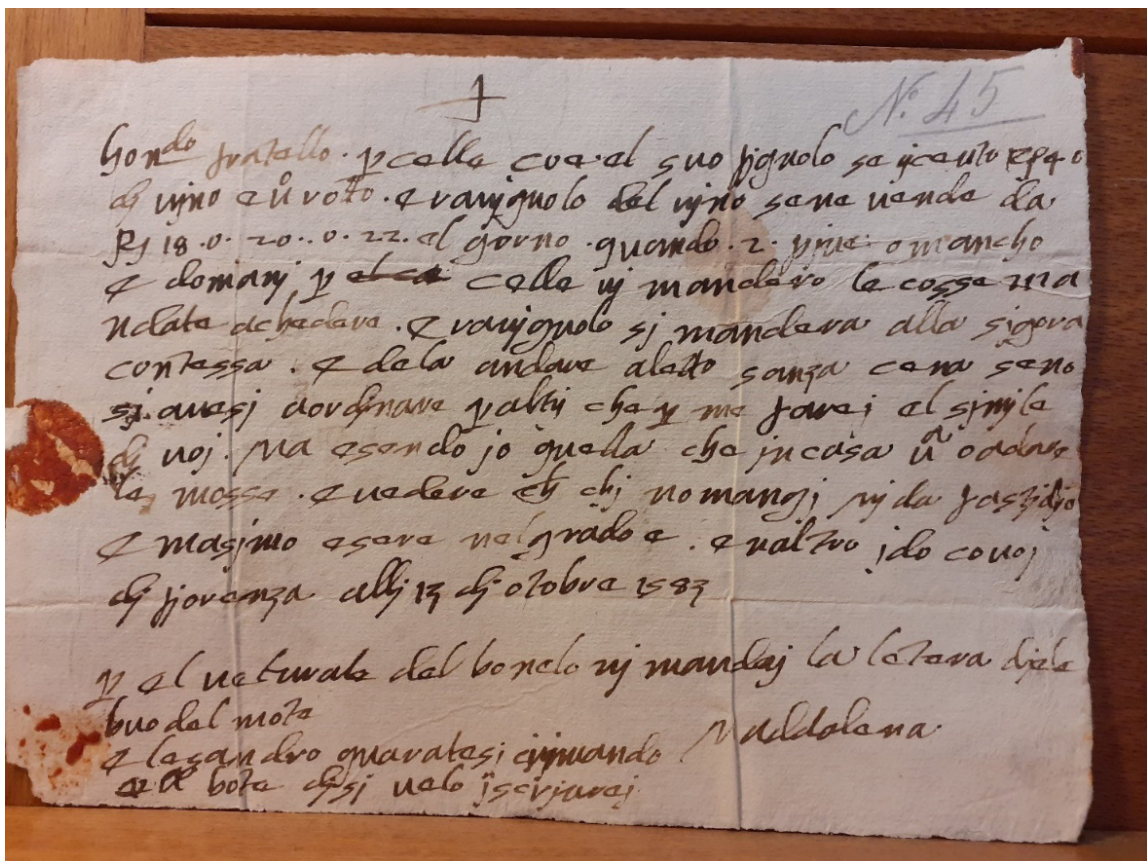 N.º 45
hon.do fratello. p celle coe. el suo fignolo se
di vino e ũ roto. e ravignolo del vino sene vende da
18. o. 20.. o. 22. el gorno. quando. 2. piue. o mancho
e domanj p celle vj mandero le cosse ma
ndate achedere. e ravignolo sj mandera alla sigora
contessa. e dela andare aletto sanza cena seno
sj. avesj aordjnare p altrj che p me farej el simjle
dj voj. Ma esendo jo quella che jn casa
le mosse. e vedere chj no mangj vj da fastidjo
e masjmo esere nel grado e. e naltro jdo co voj
dj fjorenza allj 13 dj otobre 1583
p el veturale del bonelo vj mandaj la letera
buo del mote
Maddalena
e lesandro guaratesj
bote djsj velo jscrjverej